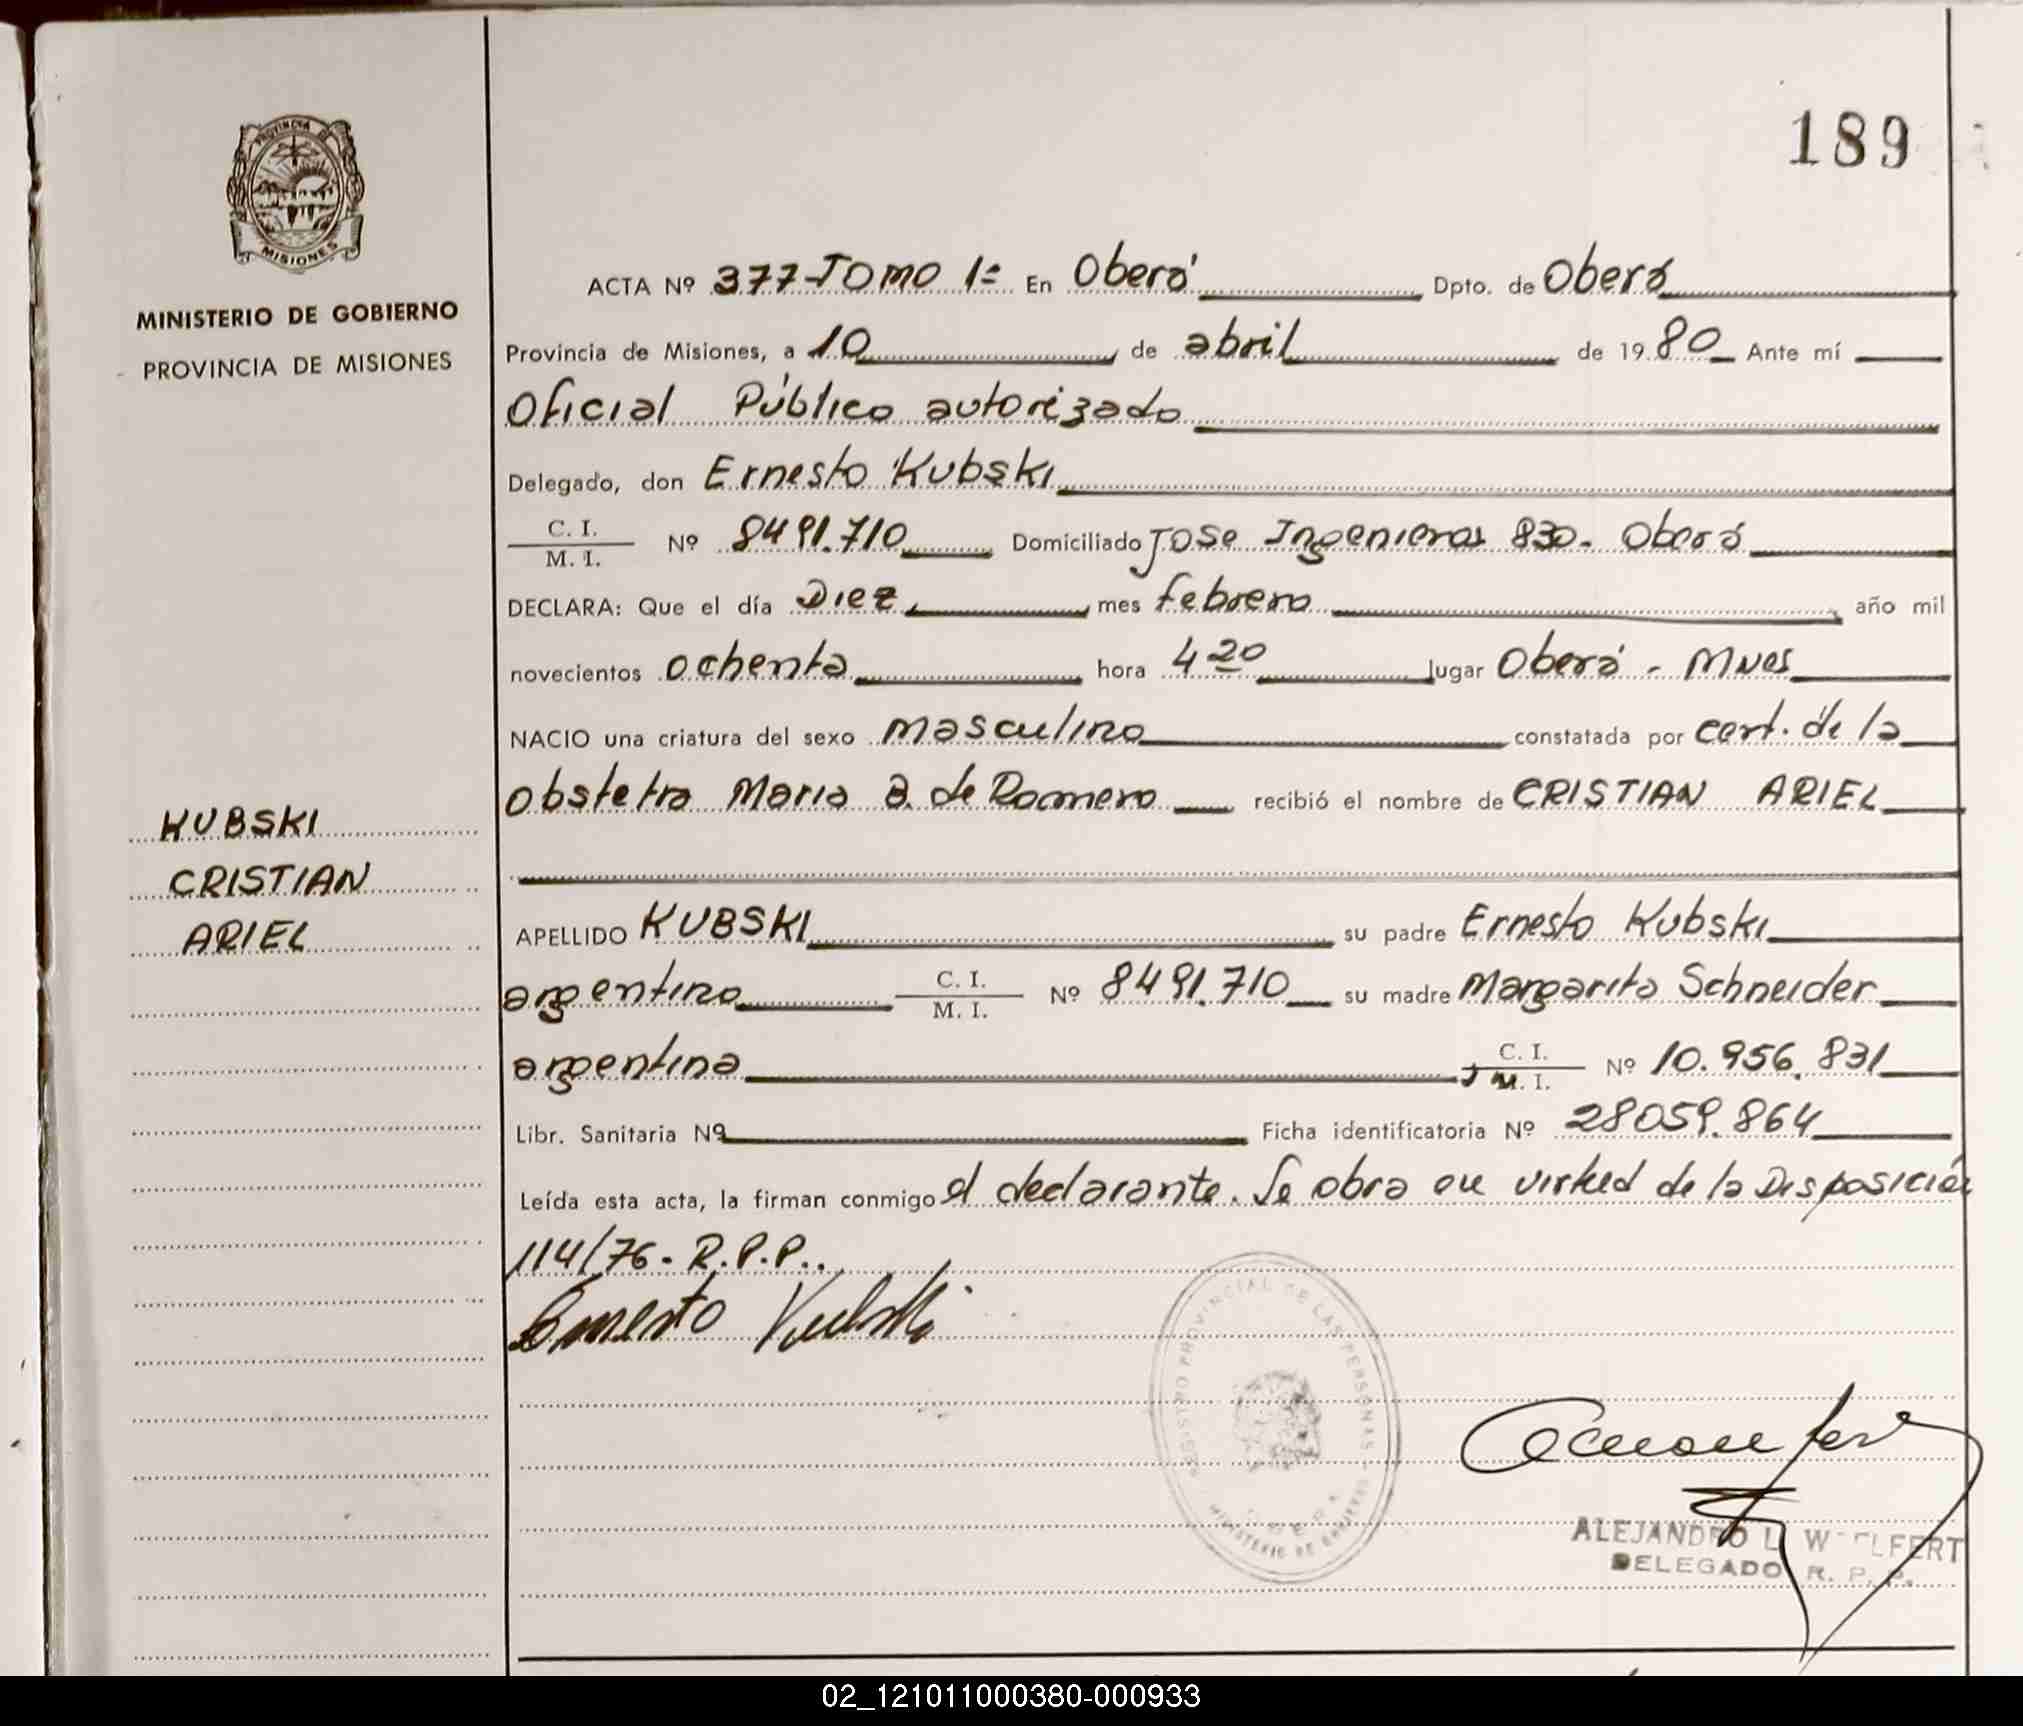 PROVINCIA DE
MISIONES
MINISTERIO DE GOBIERNO
PROVINCIA DE MISIONES
189
ACTA Nº 377-TOMO 1º En Oberá Dpto. de Oberá
Provincia de Misiones, a 10 de abril de 1980 Ante mí
Oficial Público autorizado
Delegado, don Ernesto Kubski
C. I.
M. I.
Nº 8491.710 Domiciliado Jose Ingenieros 830. Oberá
DECLARA: Que el día Diez mes febrero año mil
novecientos ochenta hora 4 20 lugar Oberá - Mnes
NACIO una criatura del sexo masculino constatada por cert. de la
obstetra Maria B. de Romero recibió el nombre de CRISTIAN ARIEL
KUBSKI
CRISTIAN
ARIEL
APELLIDO KUBSKI su padre Ernesto Kubski
argentino C. I. M. I. Nº 8491.710 su madre Margarita Schneider
argentina C. I. M. I. Nº 10.956.831
Libr. Sanitaria Nº Ficha identificatoria Nº 28059.864
Leída esta acta, la firman conmigo el declarante. Se obra en virtud de la Disposición
114/76. R.P.P..
Ernesto Kubski
REGISTRO PROVINCIAL DE LAS PERSONAS
MINISTERIO DE
ALEJANDRO L. W LFERT
DELEGADO R. P. P.
02_121011000380-000933